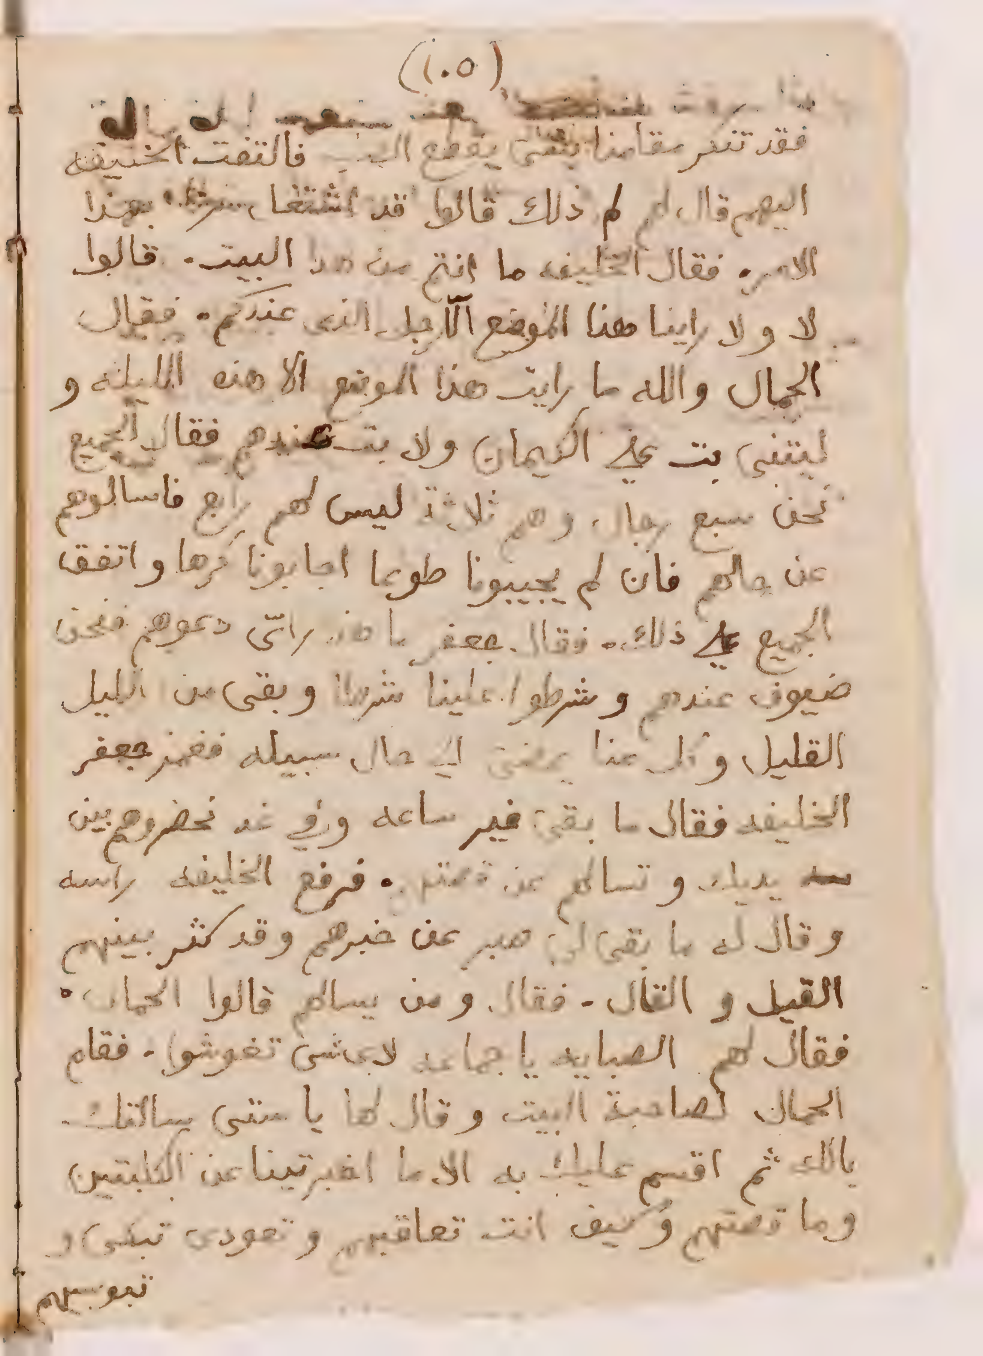 (١٠٥)
فقد تنكر مقامنا بشى يقطع القلب فالتفت الخليفه
اليهم قال لهم لم ذلك قالوا قد اشتغل سرنا بهذا
الامر. فقال الخليفه ما انتم من هذا البيت. قالوا
لا ولا راينا هذا الموضع الّا الرجل الذى عندكم. فقال
الحمال والله ما رايت هذا الموضع الا هذه الليله و
ليتنى بت على الكيمان ولا بت عندهم فقال الجميع
نحن سبع رجال وهم ثلاثة ليس لهم رابع فاسالوهم
عن حالهم فان لم يجيبونا طوعا اجابونا كرها واتفق
الجميع على ذلك. فقال جعفر ما هذا راىّى دعوهم فنحن
ضيوف عندهم وشرطوا علينا شرطا وبقى من الليل
القليل وكل منا يمضى الى حال سبيله فغمز جعفر
الخليفه فقال ما بقى غير ساعه وفى غد نحضروهم بين
يديك وتسالهم عن قصتهم. فرفع الخليفه راسه
وقال له ما بقى لى صبر عن خبرهم وقد كثر بينهم
القيل و القال. فقال ومن يسالهم قالوا الحمال.
فقال لهم الصبايه يا جماعه لاى شى تغوشوا. فقام
الحمال لصاحبة البيت وقال لها يا ستى سالتك
بالله ثم اقسم عليك به الا ما اخبرتينا عن الكلبتين
وما قصتهم وكيف انت تعاقبيهم وتعودى تبكى و
تبوسيهم